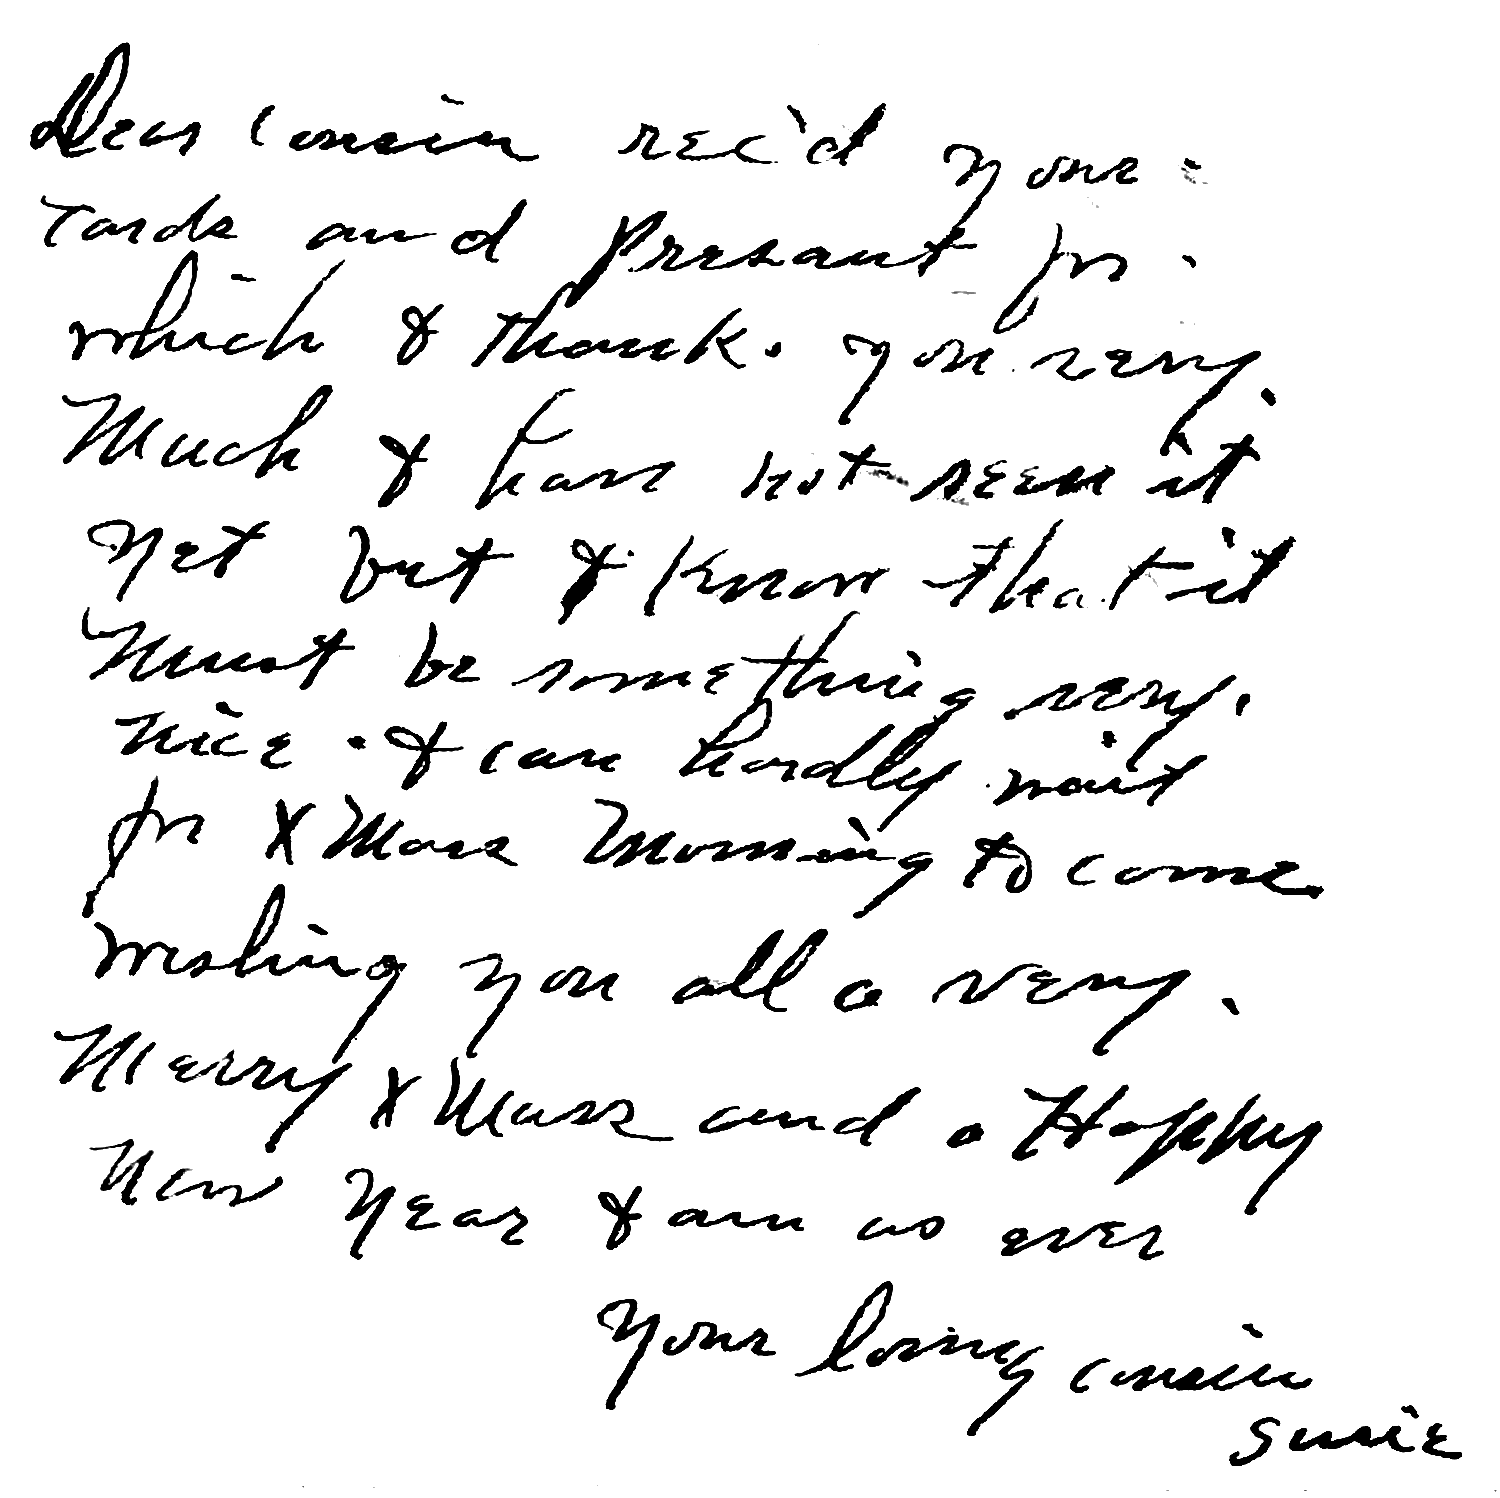 Dear Cousin rec'd your
Cards and Presant for
which I thank. you very.
Much I have not seen it
Yet but I Know that it
Must be something very.
nice. I can hardly wait
for X Mass Morning to come.
Wishing you all a very.
Merry X Mass and a Happy
New Year I am as ever
Your loving cousin
Susie